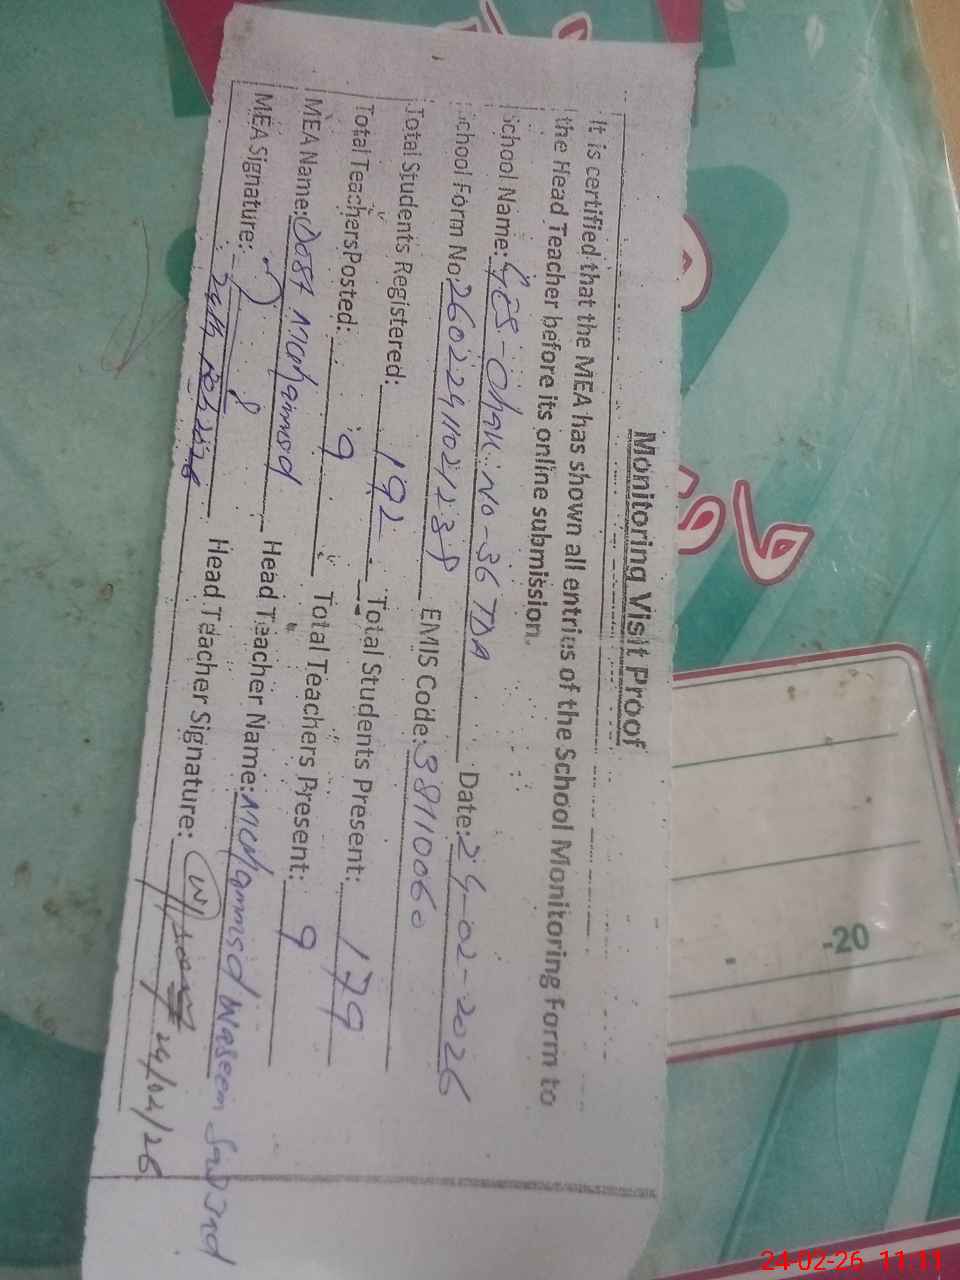 Monitoring Visit Proof
It is certified that the MEA has shown all entries of the School Monitoring Form to
the Head Teacher before its online submission.
School Name: GES-Chak No-36 TDA Date: 24-02-2026
School Form No: 2602241102123 EMIS Code: 38110060
Total Students Registered: 192 Total Students Present: 179
Total Teachers Posted: 9 Total Teachers Present: 9
MEA Name: Dost Mohammad Head Teacher Name: Mohammad Waseem
MEA Signature: Head Teacher Signature:
24/02/26
-20
24-02-26 11:11